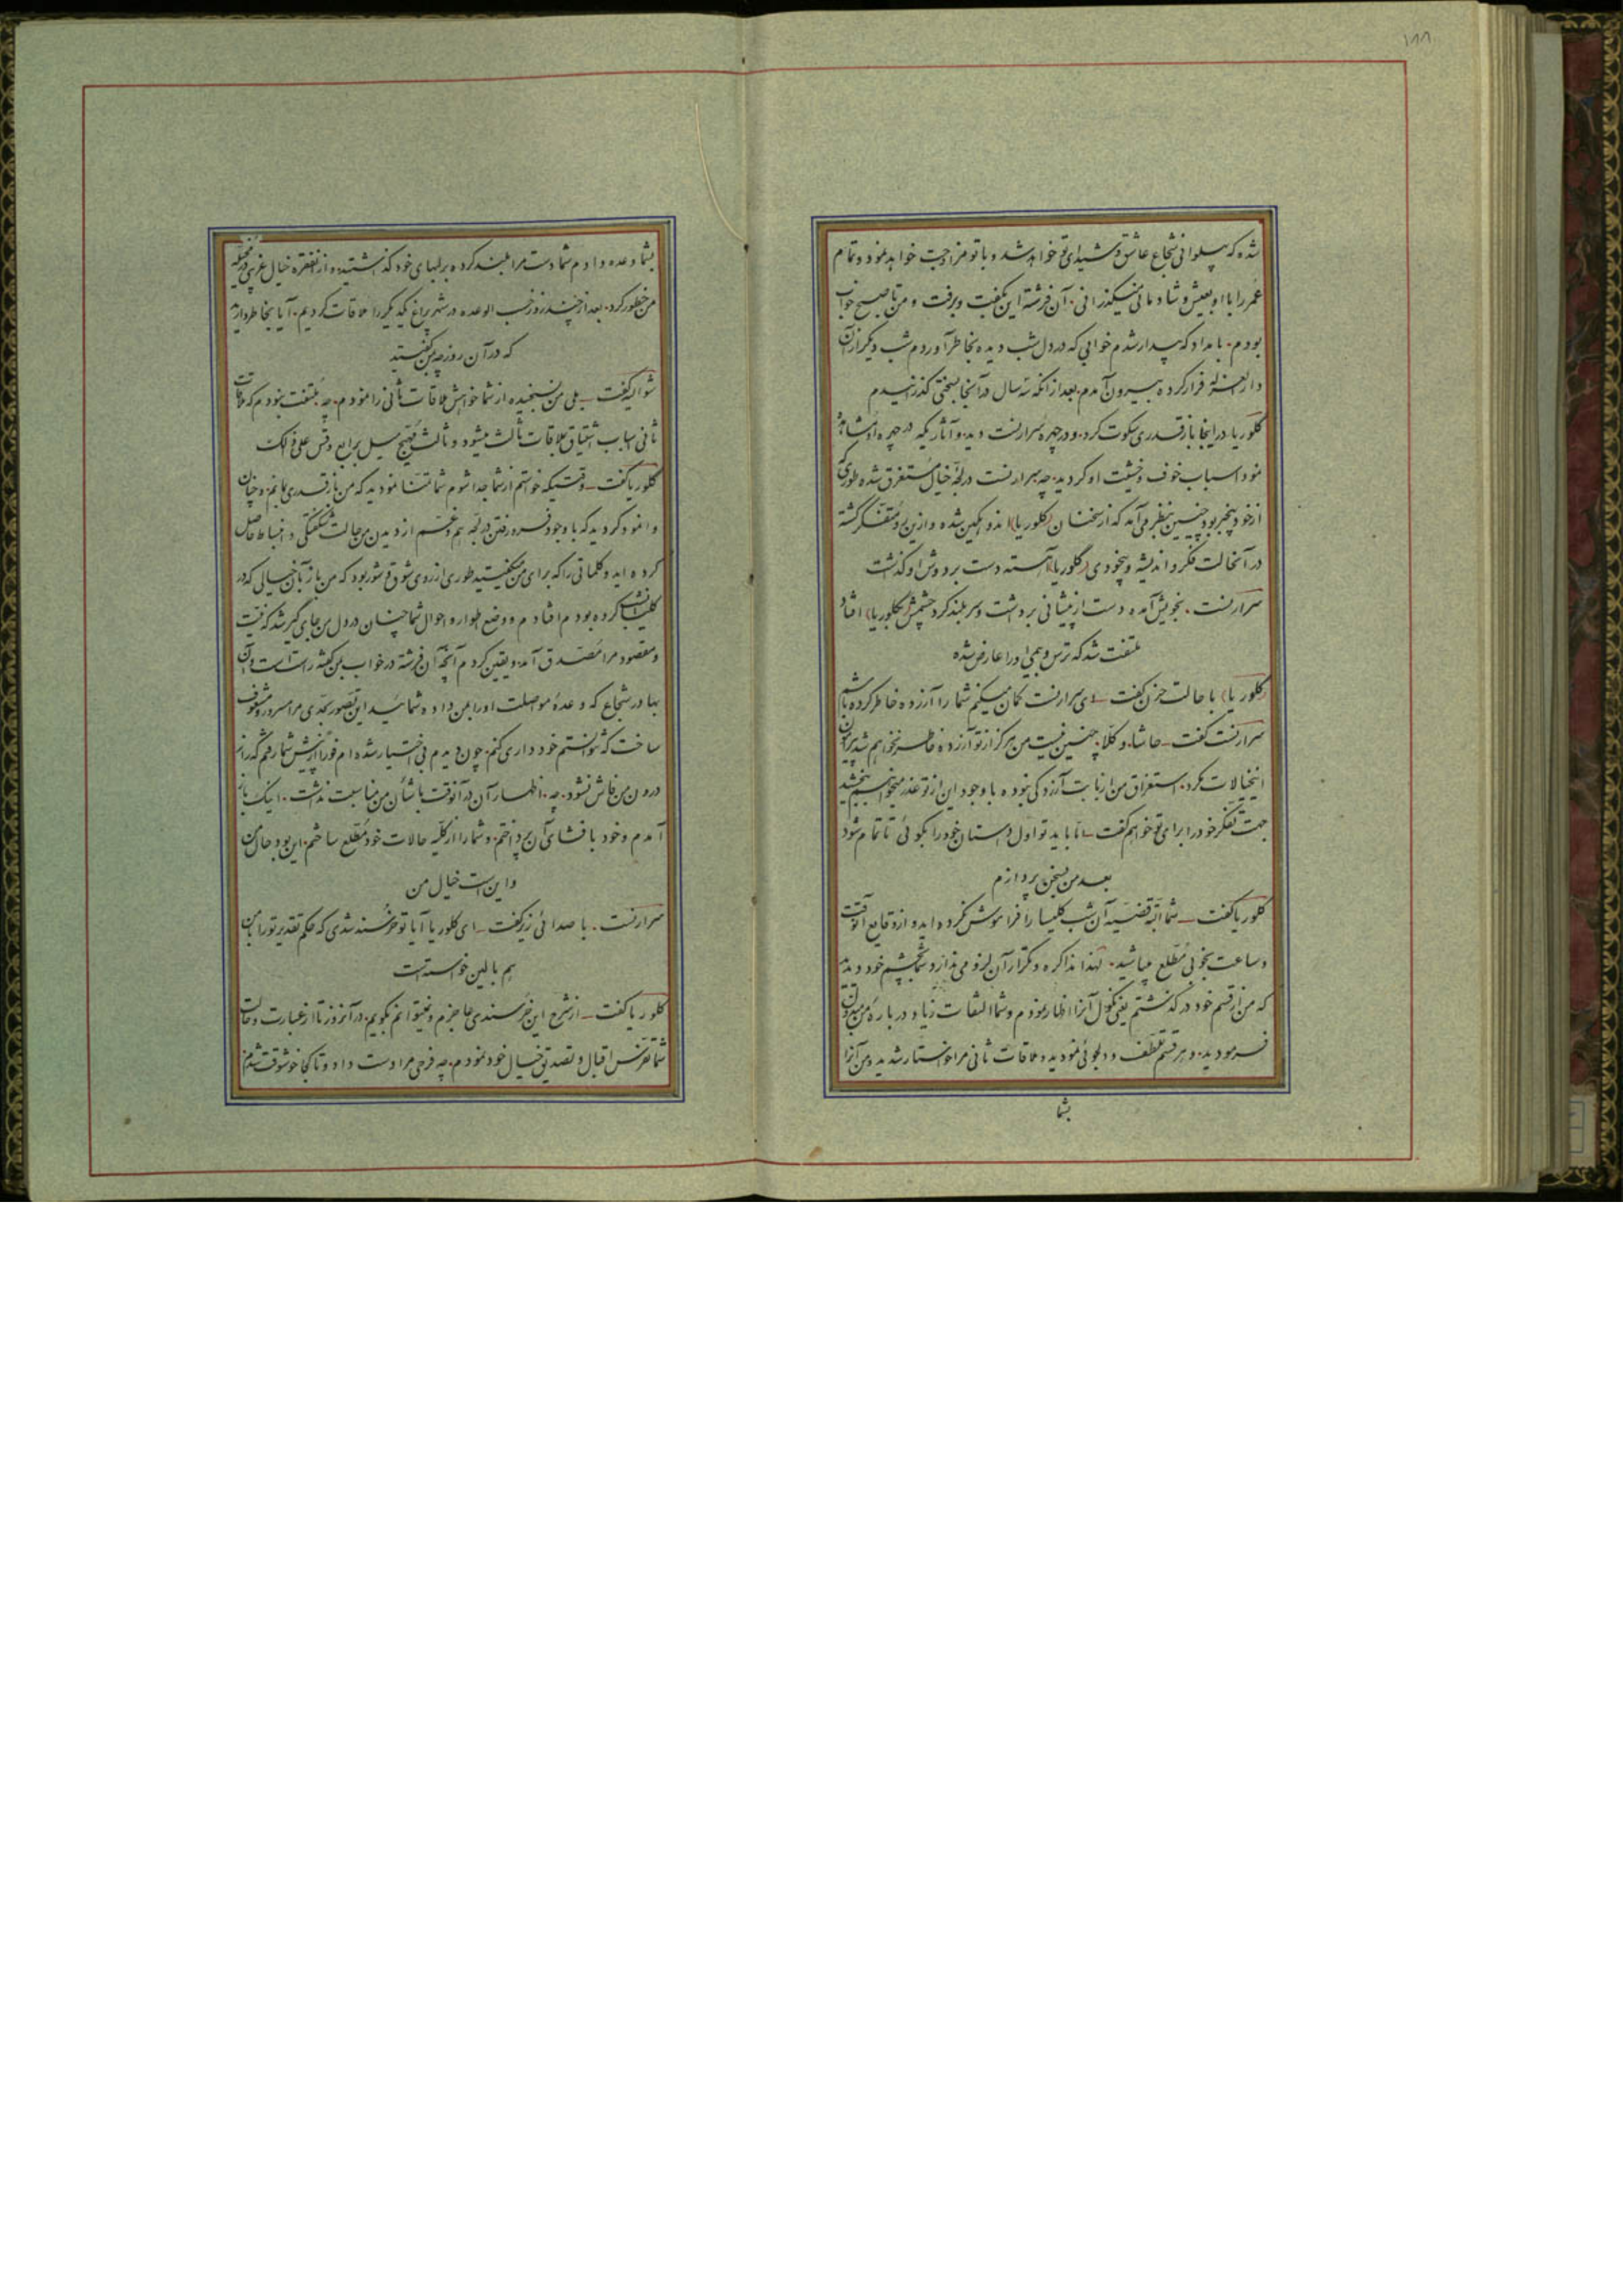 ۱۸۸
شده که پهلوانی شجاع عاشق و شیدای تو خواهد شد و با تو مزاوجت خواهد نمود و تمام
عمر را با او بعیش و شادمانی میگذرانی. آن فرشته این بگفت و برفت و من تا صبح خواب
بودم. بامداد که بیدار شدم خوابی که در دل شب دیده بخاطر آوردم شب دیگر از آن
دار العزله فرار کرده بیرون آمدم بعد از آنکه سه سال در آنجا بسختی گذرانیدم
کلوریا در اینجا باز قدری سکوت کرد. و در چهره سرارنست دید و آثاریکه در چهره او مشاهده
نمود اسباب خوف و خشیت او گردید. چه سرارنست در لجه خیال مستغرق شده طوری که
از خود بیخبر بود چنین بنظر می آمد که از سخنان (کلوریا) اندوهگین شده و از این رو متفکر گشته
در آنحالت فکر و اندیشه و بیخودی (کلوریا) آهسته دست بر دوش او گذاشت
سرارنست. بخویش آمده دست از پیشانی برداشت و سر بلند کرد چشمش (بکلوریا) افتاد
ملتفت شد که ترس و بیمی او را عارض شده
(کلوریا) با حالت حزن گفت – ای سرارنست گمان میکنم شما را آزرده خاطر کرده باشم
سرارنست گفت – حاشا. و کلا. چنین نیست من هرگز از تو آزرده خاطر نخواهم شد پیرامون
اینخیالات مگرد. استغراق من از بابت آزردگی نبوده با وجود این از تو عذر میخواهم ببخشید
جهت تفکر خود را برای تو خواهم گفت – اما باید تو اول داستان خود را بگوئی تا تمام شود
بعد من بسخن پردازم
کلوریا گفت – شما البته قضیه آن شب کلیسا را فراموش نکرده اید و از وقایع آنوقت
و ساعت بخوبی مطلع میباشید. لهذا مذاکره و تکرار آن لزومی ندارد شما بچشم خود دیدید
که من از قسم خود در گذشتم یعنی نکول آنرا اظهار نمودم و شما التفات زیاد در باره من مبذول
فرمودید. و هر قسم تلطف و دلجوئی نمودید و ملاقات ثانی مرا خواستار شدید و من آنرا
بشما
بشما وعده دادم شما دست مرا بلند کرده بر لبهای خود گذاشتید و از آنفقره خیال غریبی در مخیله
من خطور کرد. بعد از چند روز حسب الوعده در شهر پراغ یکدیگر را ملاقات کردیم. آیا بخاطر دارید
که در آن روز چه بمن گفتید
شوالیه گفت – بلی من نسنجیده از شما خواهش ملاقات ثانی را نمودم. چه ملتفت نبودم که ملاقات
ثانی اسباب اشتیاق ملاقات ثالث میشود و ثالث مهیج میل برابع و قس علی ذالک
کلوریا گفت – وقتیکه خواستم از شما جدا شوم شما تمنا نمودید که من باز قدری بمانم. و چنان
وانمود کردید که با وجود فرو رفتن در لجه هم و غم از دیدن من حالت شگفتگی و انبساط حاصل
کرده اید و کلماتی را که برای من میگفتید طوری از روی شوق و شور بود که من باز بآن خیالی که در
کلیسا کرده بودم افتادم و وضع اطوار و احوال شما چنان در دل من جای گیر شد که نیت
و مقصود مرا مصدق آمد و یقین کردم آنچه آن فرشته در خواب بمن گفته راست است و آن
بهادر شجاع که وعده مواصلت او را بمن داده شمائید این تصور بحدی مرا مسرور و مشعوف
ساخت که نتوانستم خودداری کنم. چون دیدم بی اختیار شده ام فوراً از پیش شما رفتم که راز
درون من فاش نشود. چه. اظهار آن در آنوقت با شأن من مناسبت نداشت. اینک باز
آمدم و خود بافشای آن پرداختم. و شما را از کلیه حالات خود مطلع ساختم. این بود حال من
و این است خیال من
سرارنست. با صدائی زیر گفت – ای کلوریا آیا تو خرسند شدی که حکم تقدیر تو را بمن
هم بالین خواسته است
کلوریا گفت – از شرح این خرسندی عاجزم و نمیتوانم بگویم. در آنروز تا از عبارت و حالت
شما تفرس اقبال و تصدیق خیال خود نمودم. چه فرحی مرا دست داد و تا کجا خوشوقت شدم